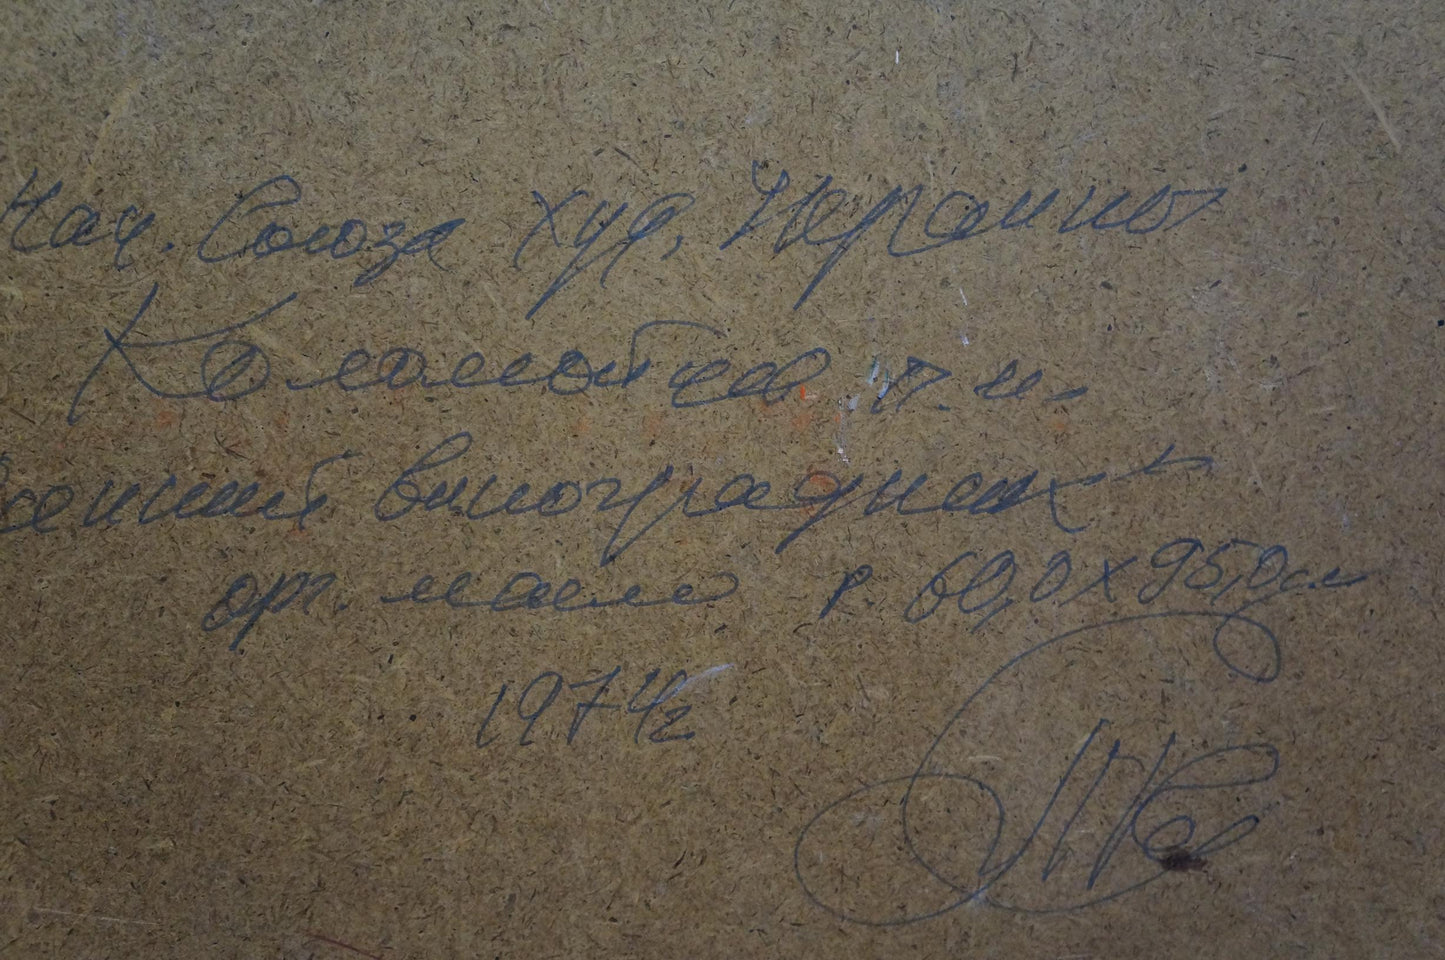 Нац. Союза худ. Украины
Коломойцев П.М.
виноградник
орг. масло р. 60,0х95,0см
1974г